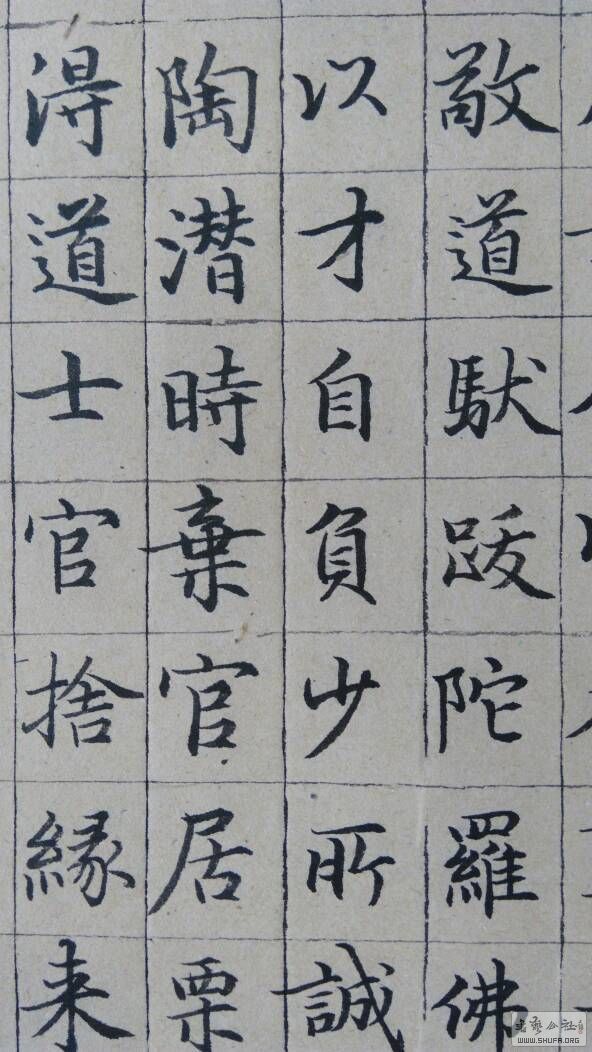 敬道馱跋陀羅佛
以才自負少所誠
陶潛時棄官居栗
淂道士官捨緣来
书艺公社
WWW.SHUFA.ORG